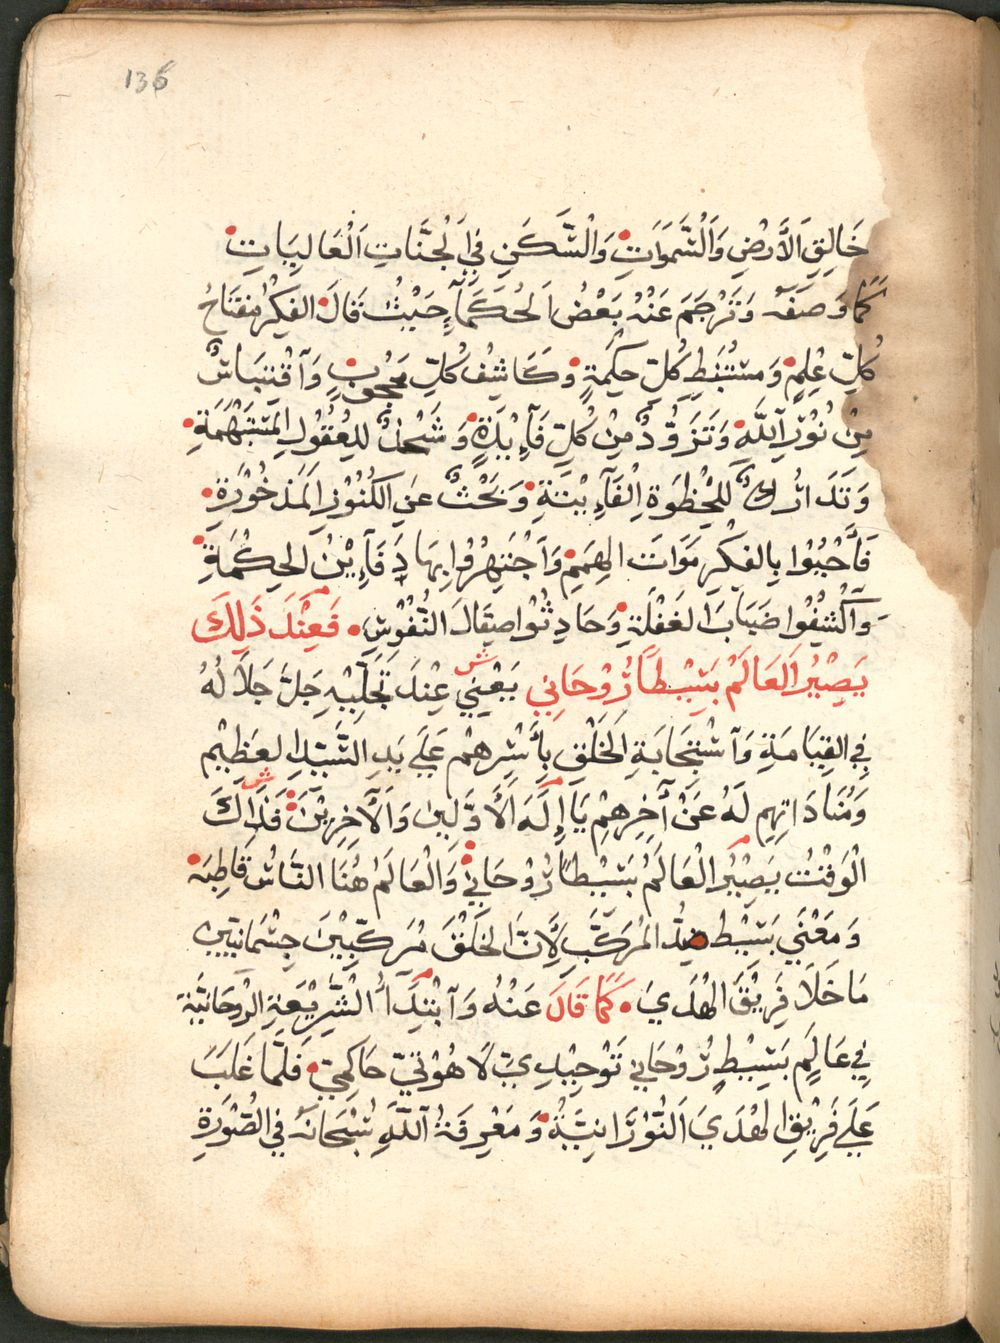 136
خَالِقِ اَلاَّرْضِ وَالْسَّمَوَاتِ وَالْسَّكَنِ فِي اَلْجَنَّاتِ اَلْعَالِيَاتِ
كَمَا وَصَفَهُ وَتَرْجَمَ عَنْهُ بَعْضُ اَلحُكَمَآءِ حَيْثُ قَالَ الفِكْرُ مِفتَاحُ
كُلِّ عْلِمٍ وَمستْنُبَطِ كُلِّ حِكْمَةٍ وَكَاشِفُ كُلِّ مَحْجُوبٍ وَآقْتِبَاسٌ
مِنْ نُوْرِ آللَّهِ وَتَزَوُّدٌ مِنْ كُلِّ فَآئِدَةٍ وَشَحْذٌ لِلعُقُوْلِ المَتبَهْمَةِ
وَتَدَارُكٌ لِلحُظْوَةِ اِلْفَآئِتَةِ وَبَحْثٌ عَنِ الكُنُوْزِ اِلَمَذخُوْرَةِ
فَأَحْيُوْا بِالفِكْرِ مَوَاتَ الهِمَمِ وَآجْتَهِرُوْا بِهَا دَفَآئِنُ الحِكْمَةِ
وَآكْشِفُوْا ضَبَابَ الغَفْلَةِ وَحَادِثُوْا صِقَالَ النُّفُوْسِ فَعِنْدَ ذَلِكَ
يَصِيْرُ اَلعَالَمْ بَسِيْطاً رُوْحَانِي ش يَعْنِي عِنْدَ تَجَلِّيْهِ جَلَّ جَلَالُهُ
فِي القِيَامَةِ وَآسْتِجَابَةِ الخَلْقِ بِأَسْرِهِمْ عَلَي يَدِ السَّيِّدِ العَظِيْمِ
وَمُنَادَاتِهِم لَهُ عَنْ آخِرِهِمْ يَا إِلَهَ اَلْأَوَّلِينَ وَاَلْآخِرِيْنَ ش فَذَاكَ
الْوَقْتُ يَصِيْرُ الْعَالَمُ بَسِيْطاً رُوْحَانِيْ وَالْعَالَمُ هُنَا النَّاسُ قَاطِبَةً
وَمَعْنَي بَسِيْط ضِدُّ المُرَكَّبِ لِأَنَّ الخَلْقَ مُرَكَّبِيْنَ جِسْمَانِيِّين
مَا خَلَا فَرِيْقَ الْهُدَي كَمَا قَالَ عَنْهُ وَآبْتِدَأُ الْشَّرِيْعَةِ الرُوْحَانِيَّةَ
فِي عَالَمٍ بَسِيْطٍ رُوْحَانِي تَوْحِيْدِيّ لَاهُوْتِيّ حَاكِمِيّ فَلَمَّا غَلَبَ
عَلَي فَرِيْقِ الهُدَي اَلنُّوْرَانِيَّةُ وَمَعْرِفَةُ آللَّهِ سُبْحَانَهُ فِي الصُّوْرَةِ